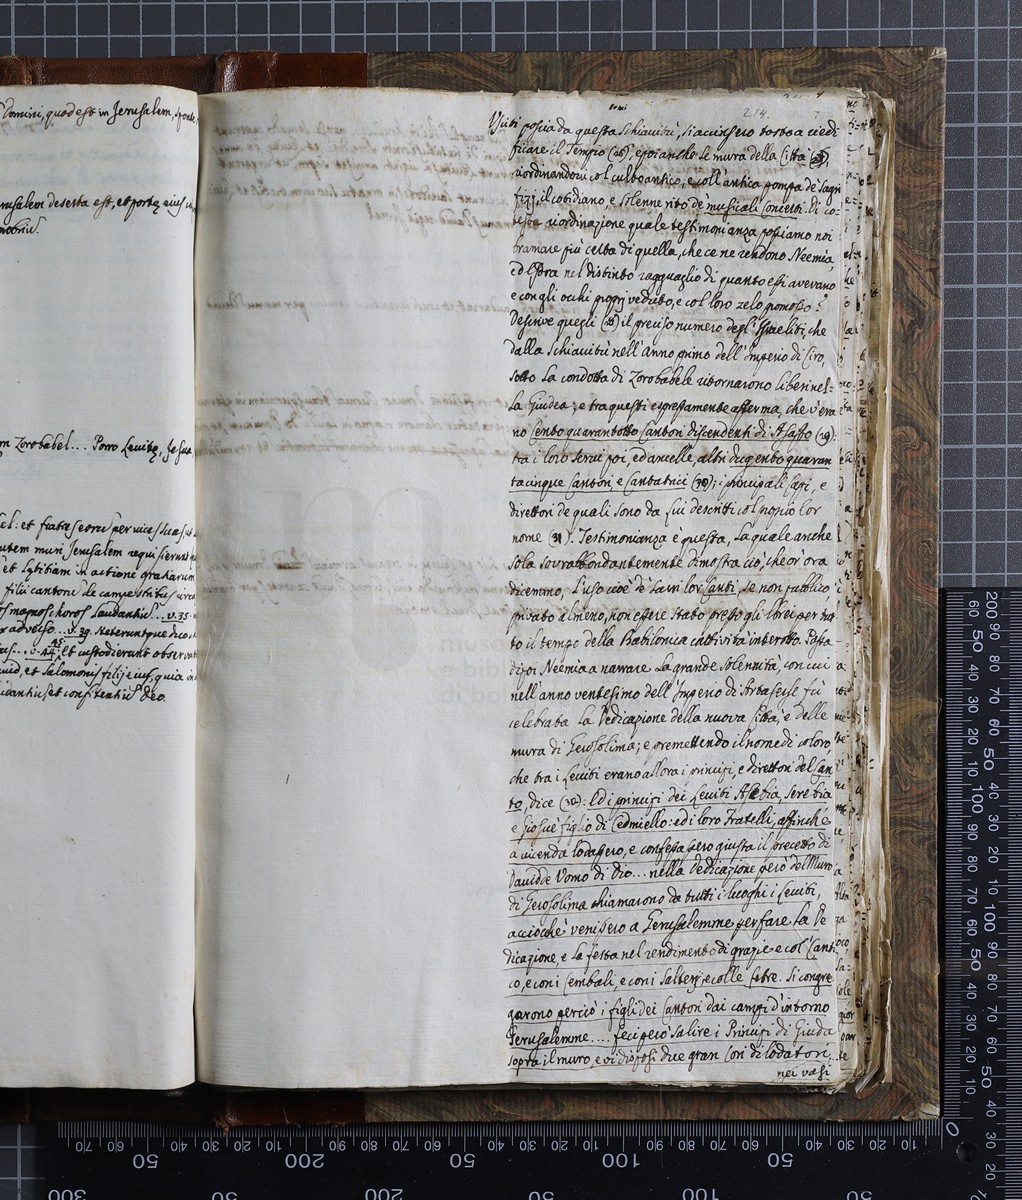 Domini, quod est in Jerusalem, sponte
Jerusalem deserta est, et portę eius
Zorobabel... Porro Leuitę, Jesua
et fratres eorũ per vices suas
autem muri Jerusalem requisierunt
et lętitiam in actione gratiarum
filii cantorũ de campestribus circa
magnos choros laudantiũ... v. 35.
adverso... v. 39. steteruntque duo
v. 44. 45. et custodierunt
et Salomonis filij eius, quia in
et confitentiũ Deo.
214.
Usciti poscia da questa Schiavitù, si accinsero tosto a riedi
ficare il Tempio (26), e poi anche le mura della Città (27),
riordinandovi col culto antico, e coll'antica pompa de' Sagri
fizj, il cotidiano, e solenne rito de' musicali Concerti. Di co
testa riordinazione quale testimonianza possiamo noi
bramare più certa di quella, che ce ne rendono Neemia,
ed Esdra nel distinto ragguaglio di quanto essi avevano
e con gli occhi proprj veduto, e col loro zelo promosso?
Descrive quegli (28) il preciso numero degl'Israeliti, che
dalla Schiavitù nell'anno primo dell'Imperio di Ciro,
sotto la condotta di Zorobabele ritornarono liberi nel=
la Giudea; e tra questi espressamente afferma, che v'era
no cento quarantotto Cantori discendenti di Asaffo (29):
tra i loro servi poi, ed ancelle, altri dugento quaran
tacinque Cantori, e Cantatrici (30); i principali Capi, e
direttori de quali sono da lui descritti col propio lor
nome (31). Testimonianza è questa, la quale anche
sola sovrabbondantemente dimostra ciò, che or ora
dicemmo, l'uso cioè de' sacri lor Canti, se non pubblico
privato almeno, non essere stato presso gli Ebrei per tut
to il tempo della Babilonica cattività interrotto. Passa
di poi Neemia a narrare la grande solennità, con cui
nell'anno ventesimo dell'Imperio di Artaserse fù
celebrata la Dedicazione della nuova Città, e delle
mura di Gerosolima; e premettendo il nome di coloro,
che tra i Leviti erano allora i principi, e direttori del Can
to, dice (32): Ed i principi dei Leviti Asebia, Serebia
e Giosuè figlio di Cedmiello: ed i loro Fratelli, affinchè
a vicenda lodassero, e confessassero giusta il precetto di
Davidde Uomo di Dio... nella Dedicazione però del Muro
di Gerosolima chiamarono da tutti i luoghi i Leviti,
acciochè venissero a Gerusalemme per fare la De
dicazione, e la festa nel rendimento di grazie e col Canti
co, e con i Cembali, e con i Salterj, e colle Cetre. Si congre
garono perciò i figli dei Cantori dai campi d'intorno
Gerusalemme.... feci però salire i Principi di Giuda
sopra il muro, e vi disposi due gran Cori di lodatori,
nei vasi